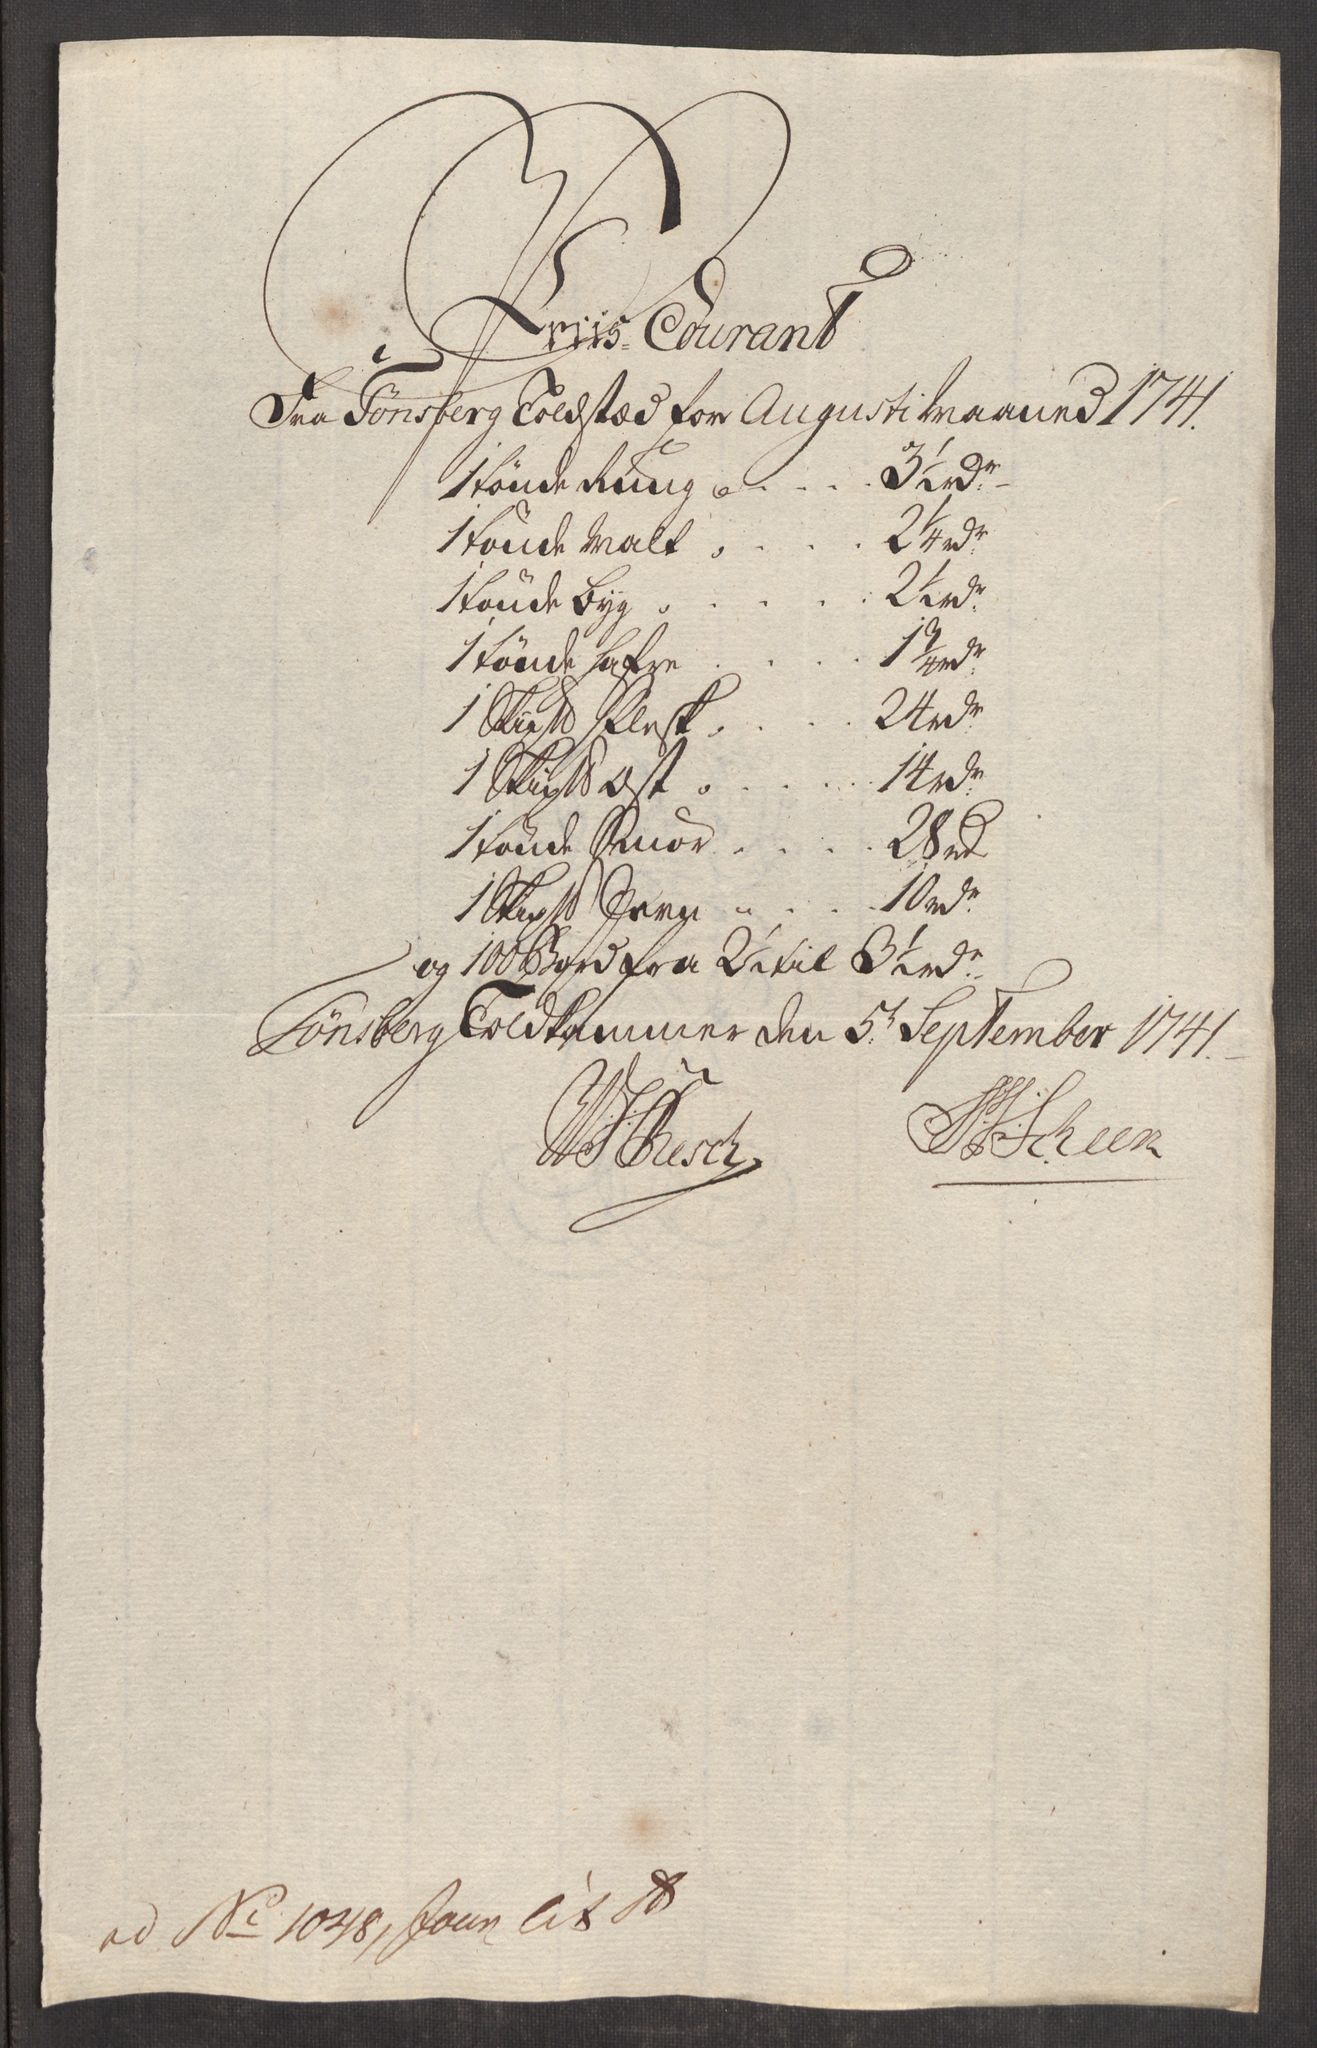 Priis-Courant
Fra Tönsberg Toldstæd for Augusti Maaned 1741.
1 tönde Rüug . . . . 3½ rdr.
1 tönde Malt . . . . 2¼ rdr.
1 tönde Byg . . . . 2½ rdr.
1 tönde Hafre . . . . 1¾ rdr.
1 Skip℔ Flesk . . . . 24 rdr.
1 Skip℔ Ost . . . . 14 rdr.
1 tönde Smör . . . . 28 rd
1 Skip℔ Jern . . . . 10 rdr.
og 100 Bord fra 2½ til 3½ rdr.
Tönsberg Toldkammer den 5t. September 1741.
Resch Scheen
ad No. 1048, Jour Lit